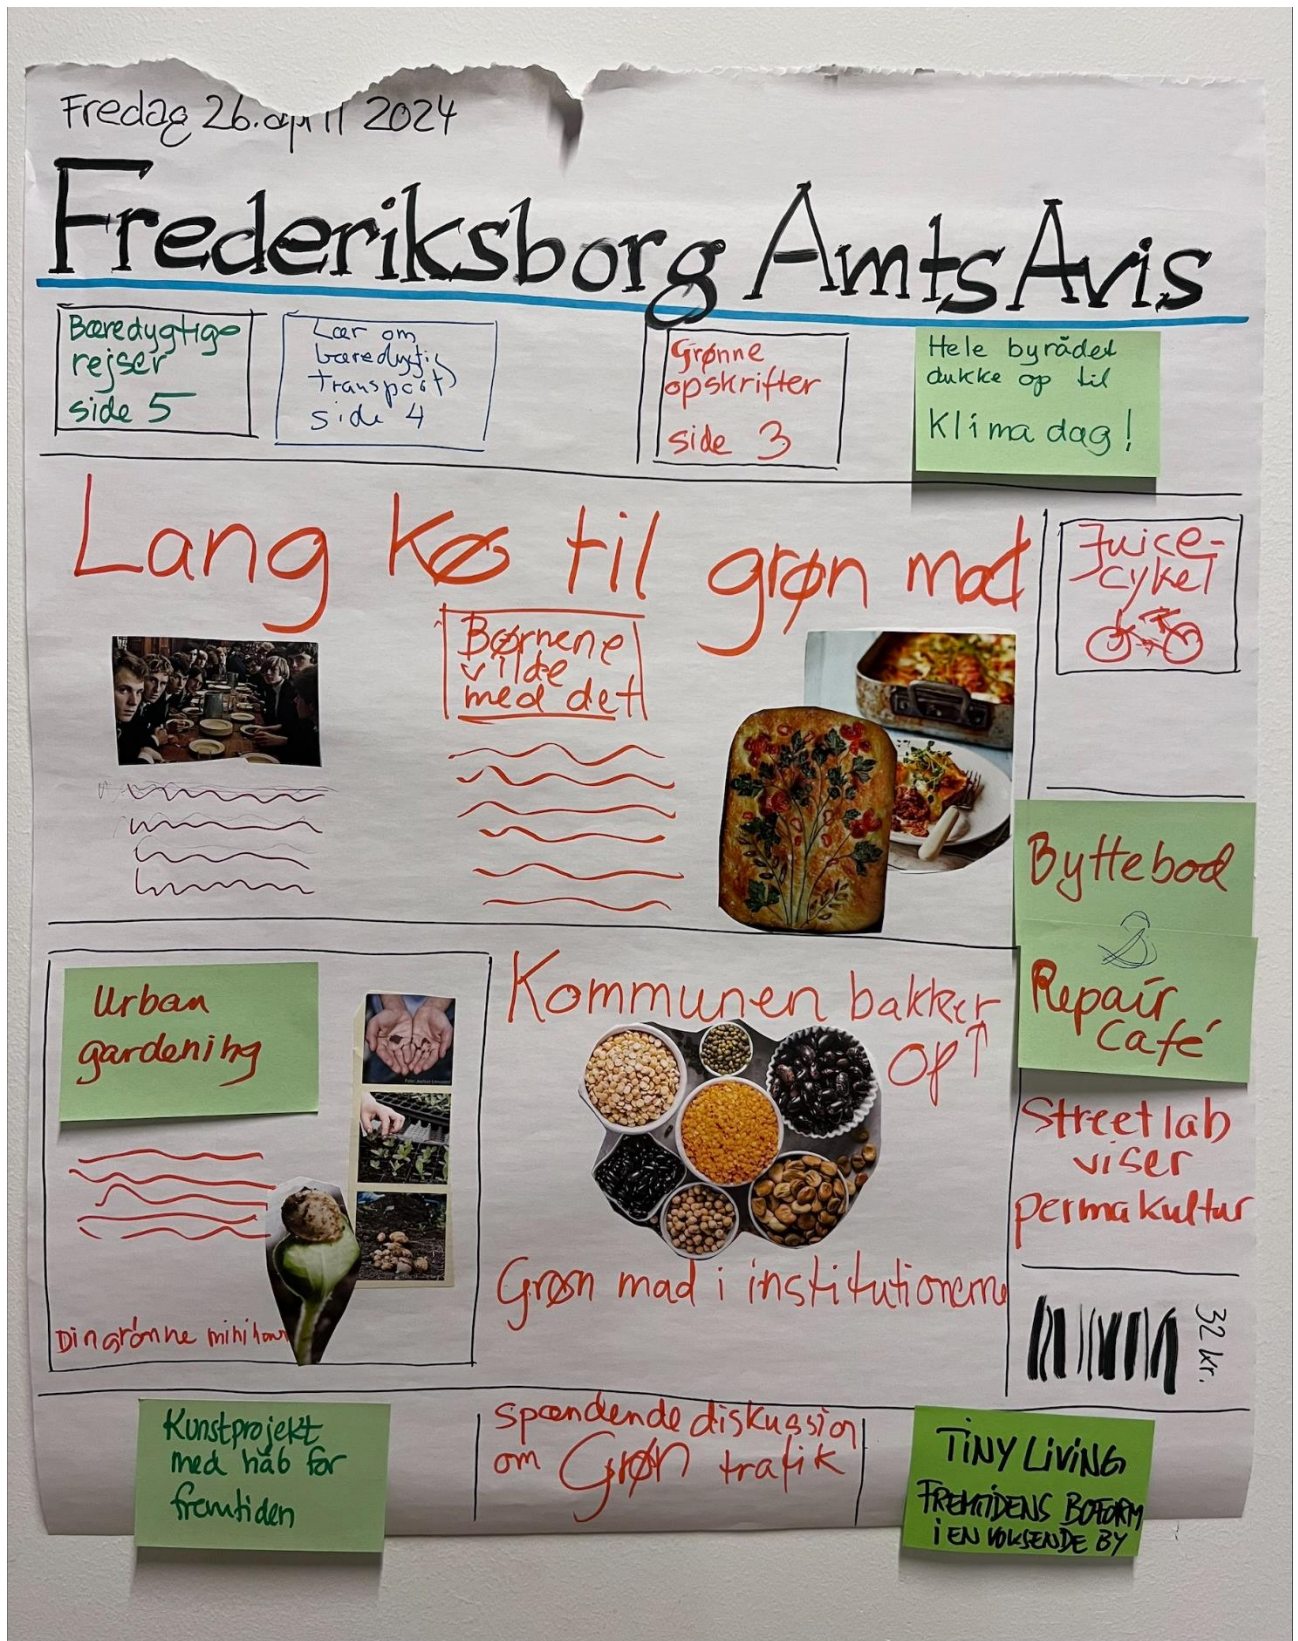 Fredag 26. april 2024
Frederiksborg Amts Avis
Bæredygtige
rejser
side 5
Lær om
bæredygtig
transport
side 4
Grønne
opskrifter
side 3
Hele byrådet
dukke op til
Klimadag!
Lang kø til grøn mad
Børnene
vilde
med det
Juice-
cykel
Byttebod
&
Repair
Café
Urban
gardening
Din grønne mini
Kommunen bakker
op
Grøn mad i institutionerne
Streetlab
viser
permakultur
32 kr.
Kunstprojekt
med håb for
fremtiden
spændende diskussion
om Grøn trafik
TINY LIVING
FREMTIDENS BOFORM
I EN VOKSENDE BY